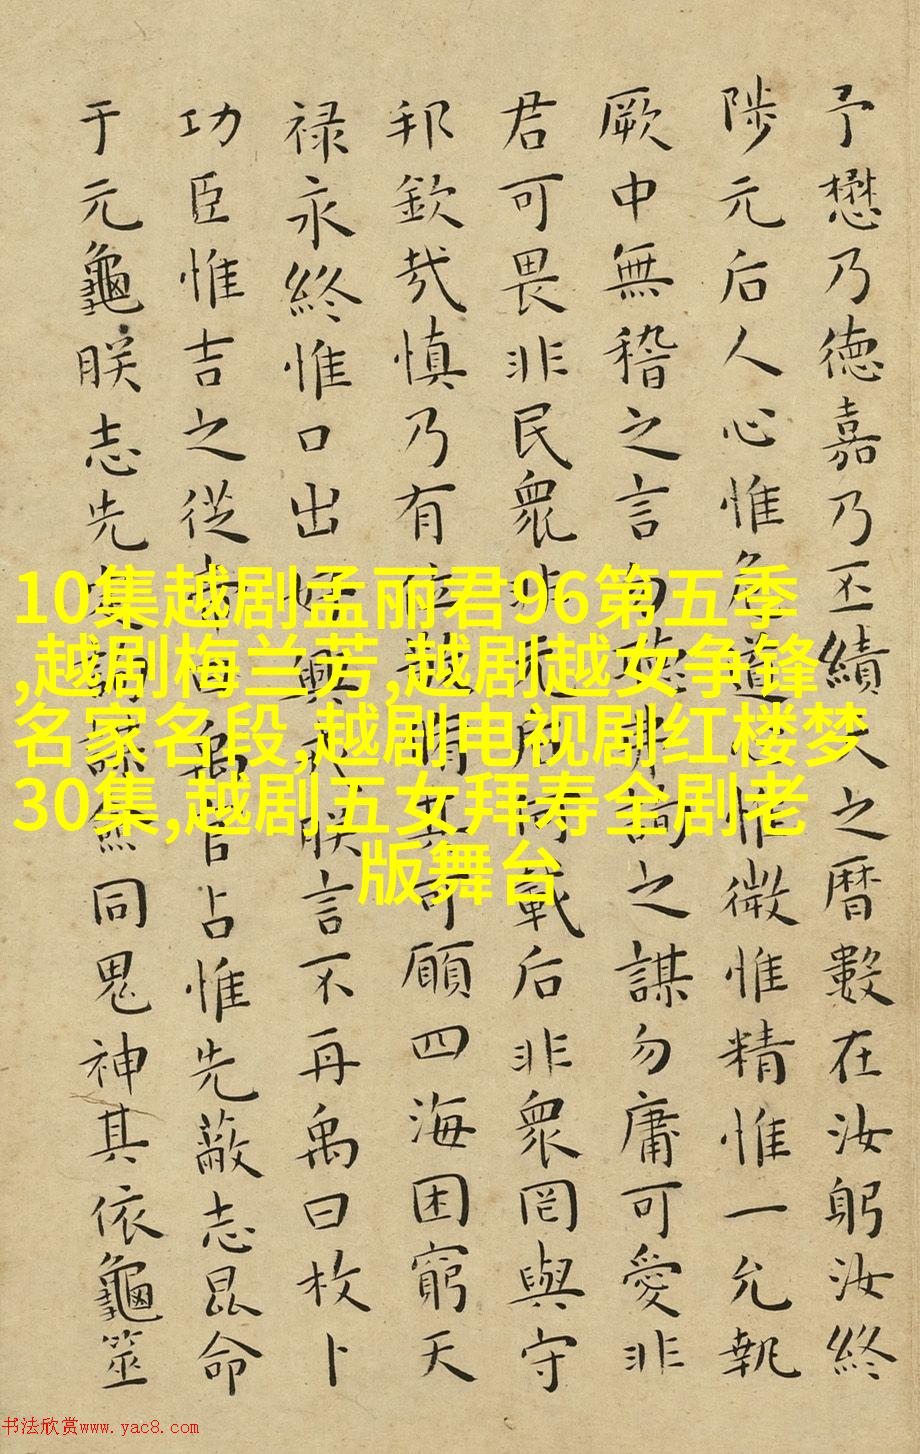 予懋乃德嘉乃丕績天之曆數在汝躬汝終
陟元后人心惟危道心惟微惟精惟一允執
厥中無稽之言勿聽弗詢之謀勿庸可愛非
君可畏非民衆非元后何戴后非衆罔與守
邦欽哉慎乃有位敬脩其可願四海困窮天
禄永終惟口出好興戎朕言不再禹曰枚卜
功臣惟吉之從帝曰禹官占惟先蔽志昆命
于元龜朕志先定詢謀僉同鬼神其依龜筮
10集越剧孟丽君96第五季
,越剧梅兰芳,越剧越女争锋
名家名段,越剧电视剧红楼梦
30集,越剧五女拜寿全剧老
版舞台
书法欣赏www.yac8.com